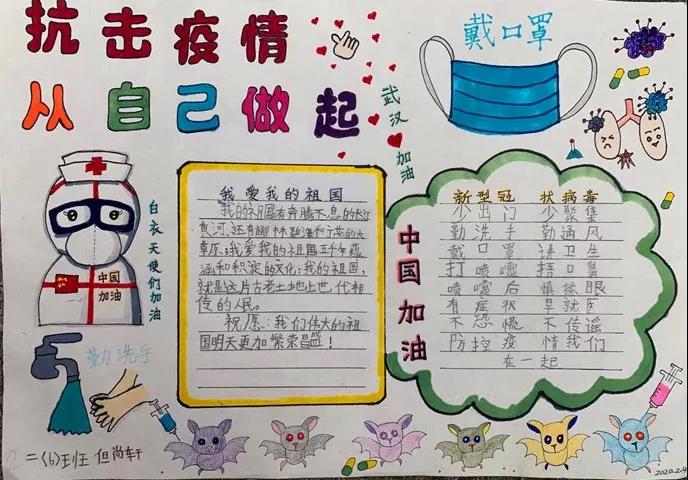 抗击疫情
从自己做起
戴口罩
武汉加油
白衣天使们加油
中国
加油
勤洗手
我爱我的祖国
我的祖国有奔腾不息的长江
黄河,还有椰林碧海和广袤的大
草原。我爱我的祖国五千年蕴
涵和积淀的文化;我的祖国,
就是这片古老土地上世代相
传的人民。
祝愿:我们伟大的祖
国明天更加繁荣昌盛!
中国加油
新型冠 状病毒
少出门 少聚集
勤洗手 勤通风
戴口罩 讲卫生
打喷嚏 捂口鼻
喷嚏后 慎揉眼
有症状 早就医
不恐慌 不传谣
防控疫 情我们
在一起
二(6)班 但尚轩
2020.2.4